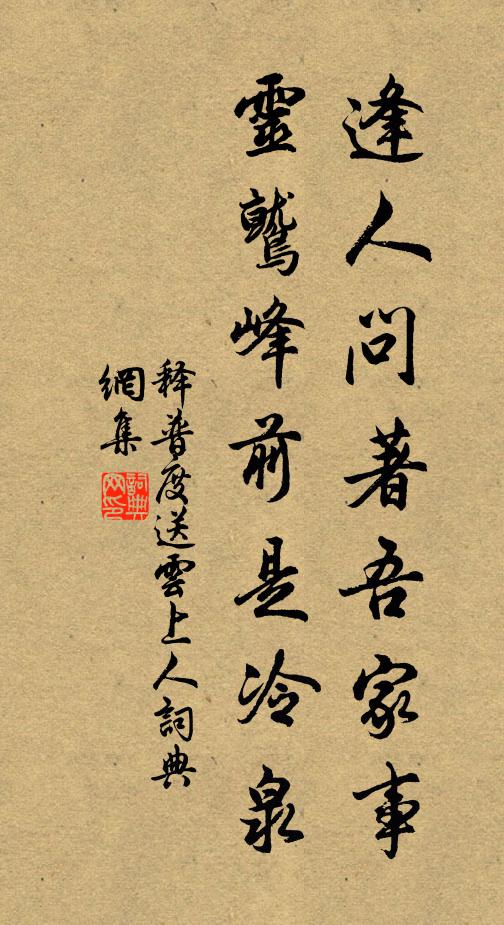 逢人問著吾家事
靈鷲峰前是冷泉
释普度送雲上人詞典
網集
詞典
网印